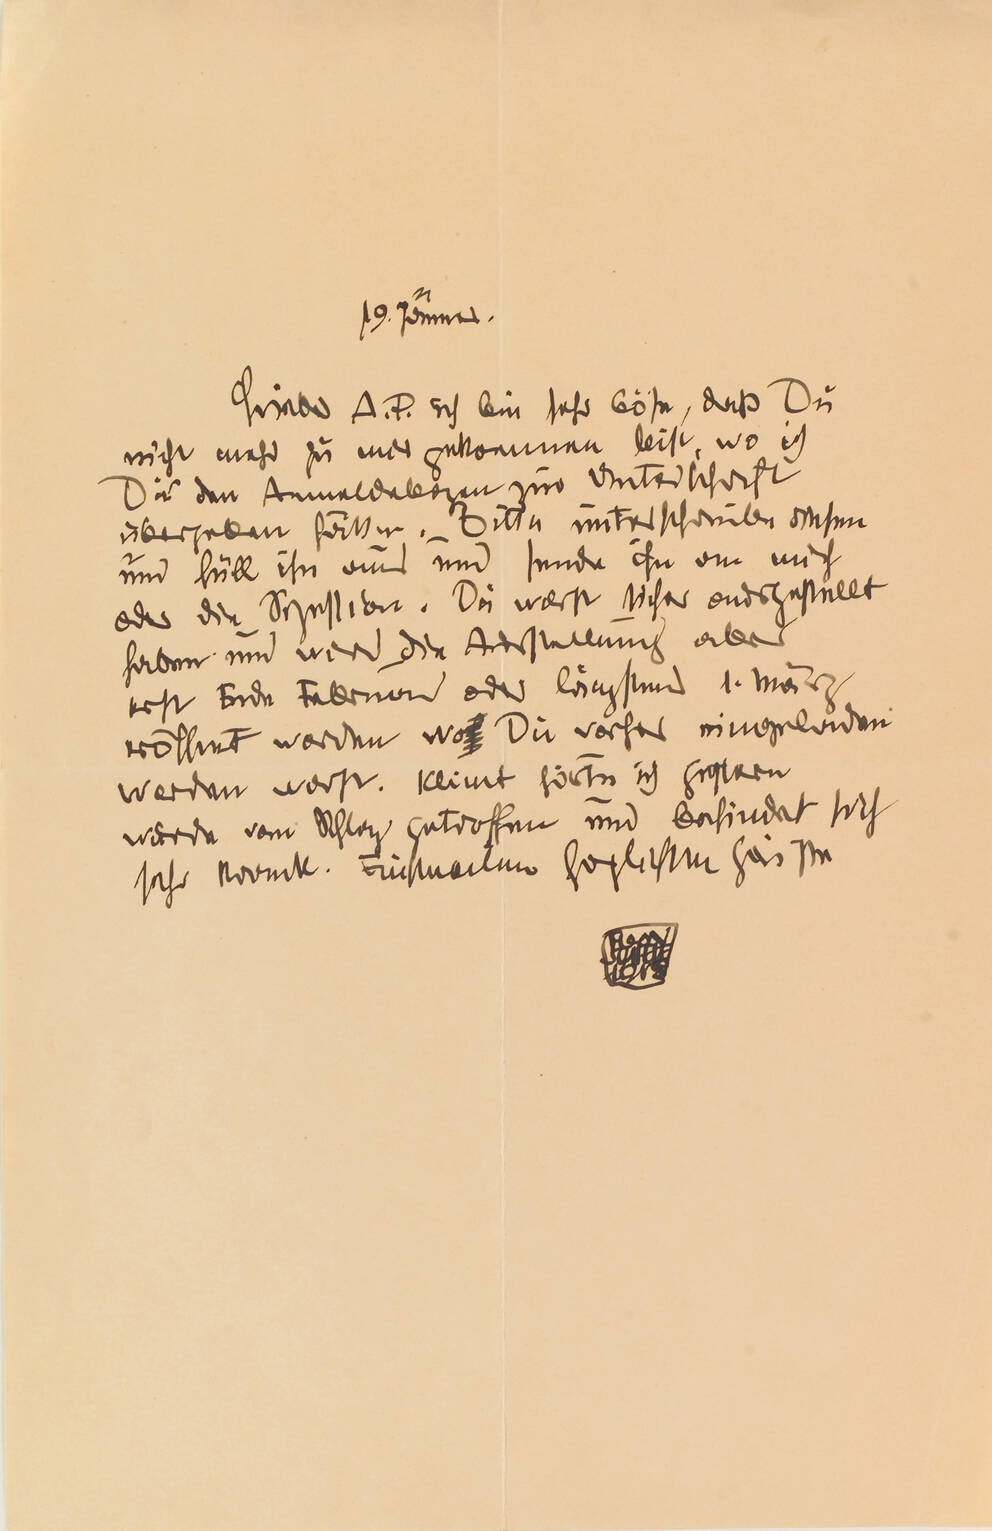 19. Jänner.
Lieber A.P. ich bin sehr böse, daß Du
nicht mehr zu mir gekommen bist, wo ich
Dir den Anmeldebogen zur Unterschrift
übergeben hätte. Bitte unterschreibe diesen
und füll ihn aus und sende ihn an mich
oder die Sezession. Du wirst sicher ausgestellt
haben und wird die Ausstellung aber
erst Ende Februar oder längstens 1. März
eröffnet werden wo Du vorher eingeladen
werden wirst. Klimt hörte ich gestern
wurde vom Schlag getroffen und befindet sich
sehr krank. Einstweilen herzlichste Grüße